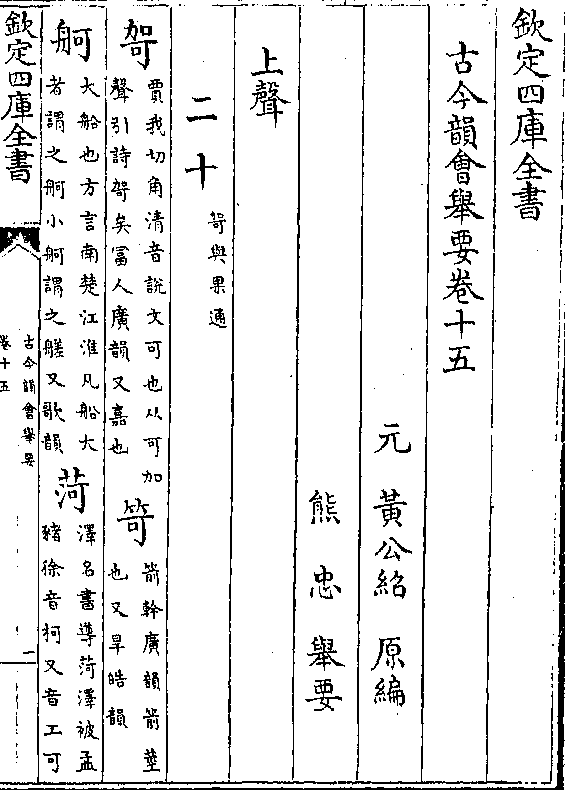 欽定四庫全書
古今韻會舉要卷十五
元 黃公紹 原編
熊 忠 舉要
上聲
二十 哿與果通
哿 賈我切角清音說文可也从可加
聲引詩哿矣富人廣韻又嘉也
笴 箭幹廣韻箭莖
也又旱皓韻
舸 大船也方言南楚江淮凡船大
者謂之舸小舸謂之艖又歌韻
菏 澤名書導菏澤被孟
豬徐音柯又音工可
欽定四庫全書
古今韻會舉要
卷十五
一